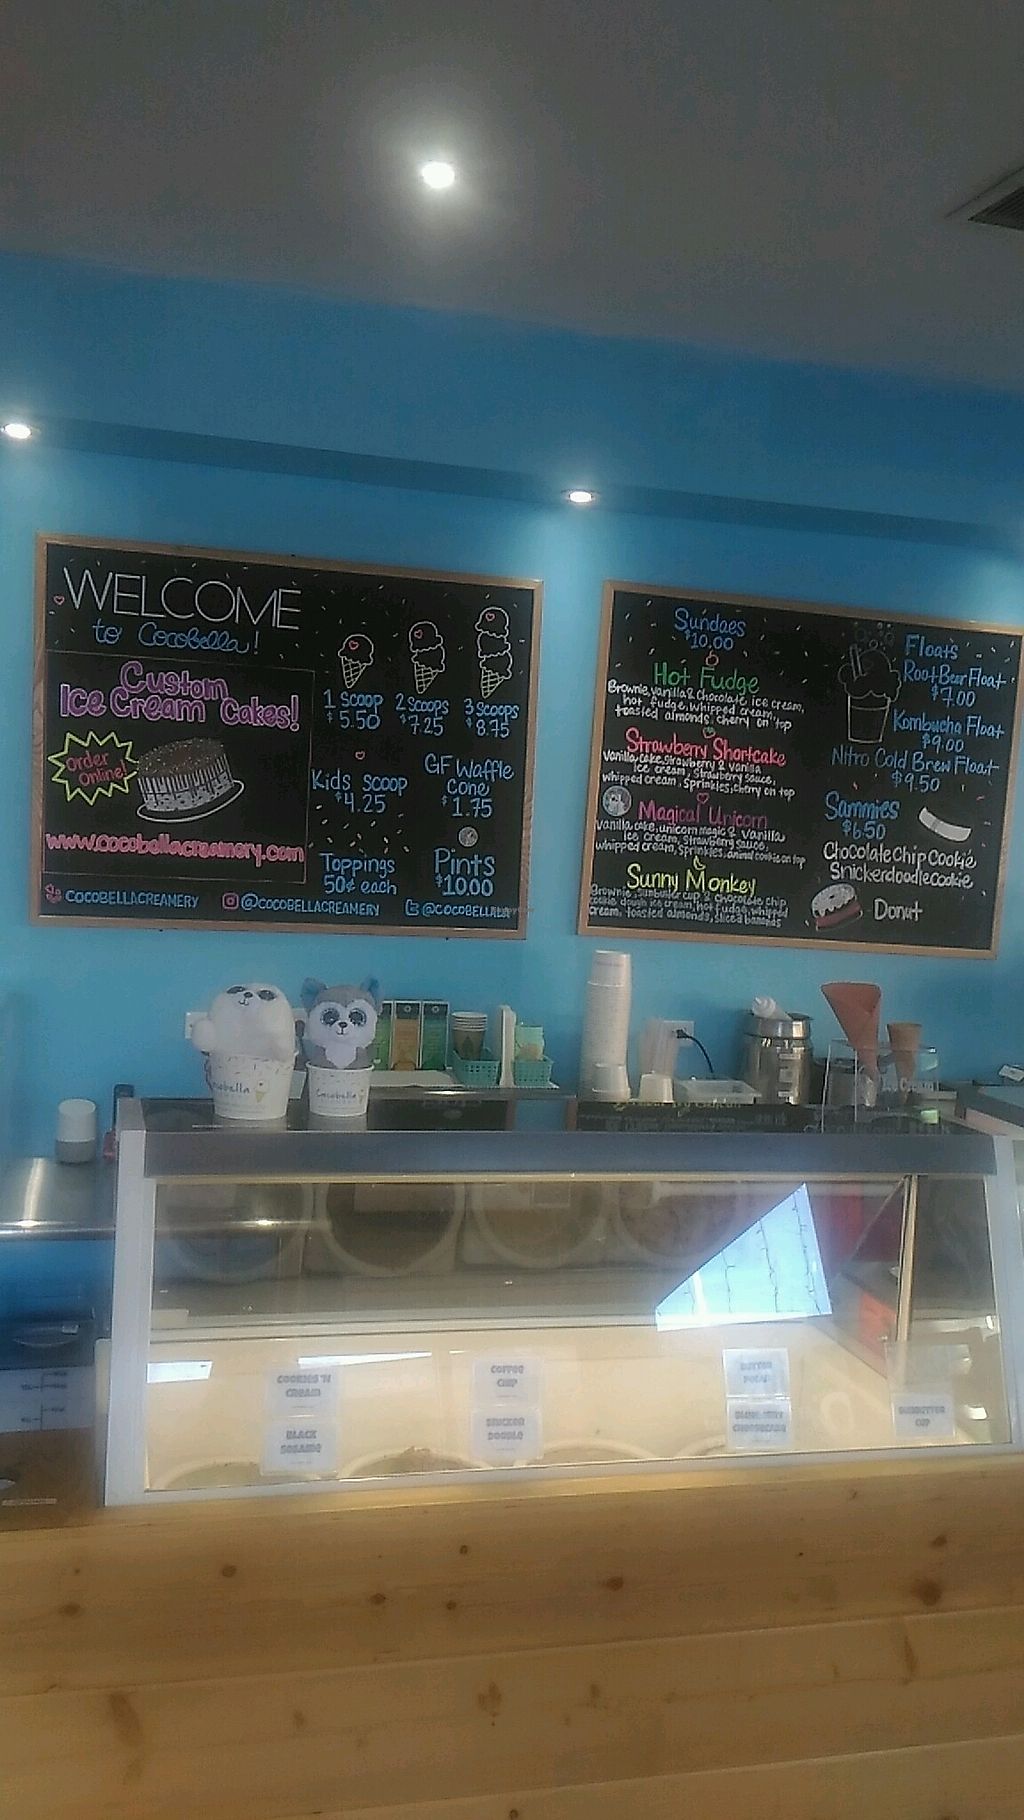 WELCOME
to CocoBella!
Custom
Ice Cream Cakes!
Order
Online!
www.cocobellacreamery.com
COCOBELLACREAMERY
@COCOBELLACREAMERY
@COCOBELLALA
1 Scoop
$5.50
2 Scoops
$7.25
3 Scoops
$8.75
Kids Scoop
$4.25
GF Waffle
Cone
$1.75
Toppings
50¢ each
Pints
$10.00
Sundaes
$10.00
Hot Fudge
Brownie, vanilla & chocolate, ice cream,
hot fudge, whipped cream,
toasted almonds, cherry on top
Strawberry Shortcake
Vanilla cake, strawberry & vanilla
ice cream, strawberry sauce,
whipped cream, sprinkles, cherry on top
Magical Unicorn
Vanilla cake, unicorn magic & vanilla
ice cream, strawberry sauce,
whipped cream, sprinkles, animal cookie on top
Sunny Monkey
Brownie, sunbutter cup & chocolate chip
cookie dough ice cream, hot fudge, whipped
cream, toasted almonds, sliced bananas
Floats
Root Beer Float
$7.00
Kombucha Float
$9.00
Nitro Cold Brew Float
$9.50
Sammies
$6.50
Chocolate Chip Cookie
Snickerdoodle cookie
Donut
Cocobella
Cocobella
Ice Cream
COOKIES 'N
CREAM
BLACK
SESAME
COFFEE
CHIP
SNICKER
DOODLE
BUTTER
PECAN
BLUEBERRY
CHEESECAKE
SUNBUTTER
CUP